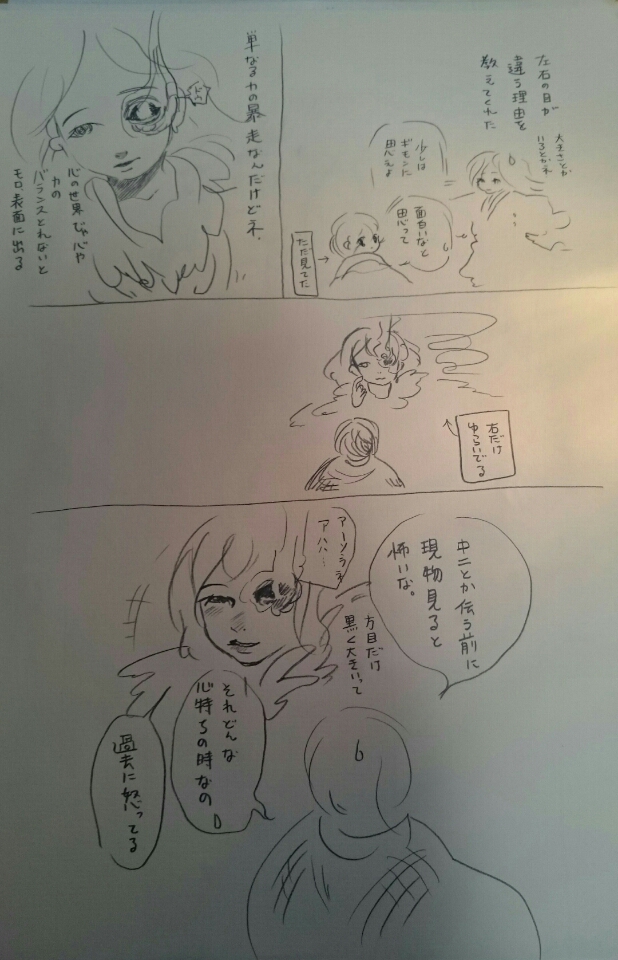 左右の目が
違う理由を
教えてくれた
大きさとか
いろとかネ
少しは
ギモンに
思えよ
面白いなと
思って
ただ見てた
単なる力の暴走なんだけどネ、
心の世界じゃ心や
力の
バランスとれないと
モロ表面に出る
右だけ
ゆらいでる
中二とか伝う前に
現物見ると
怖いな。
アーソラネ
アハハ…
方目だけ
黒く大きいって
それどんな
心持ちの時なの
過去に怒ってる